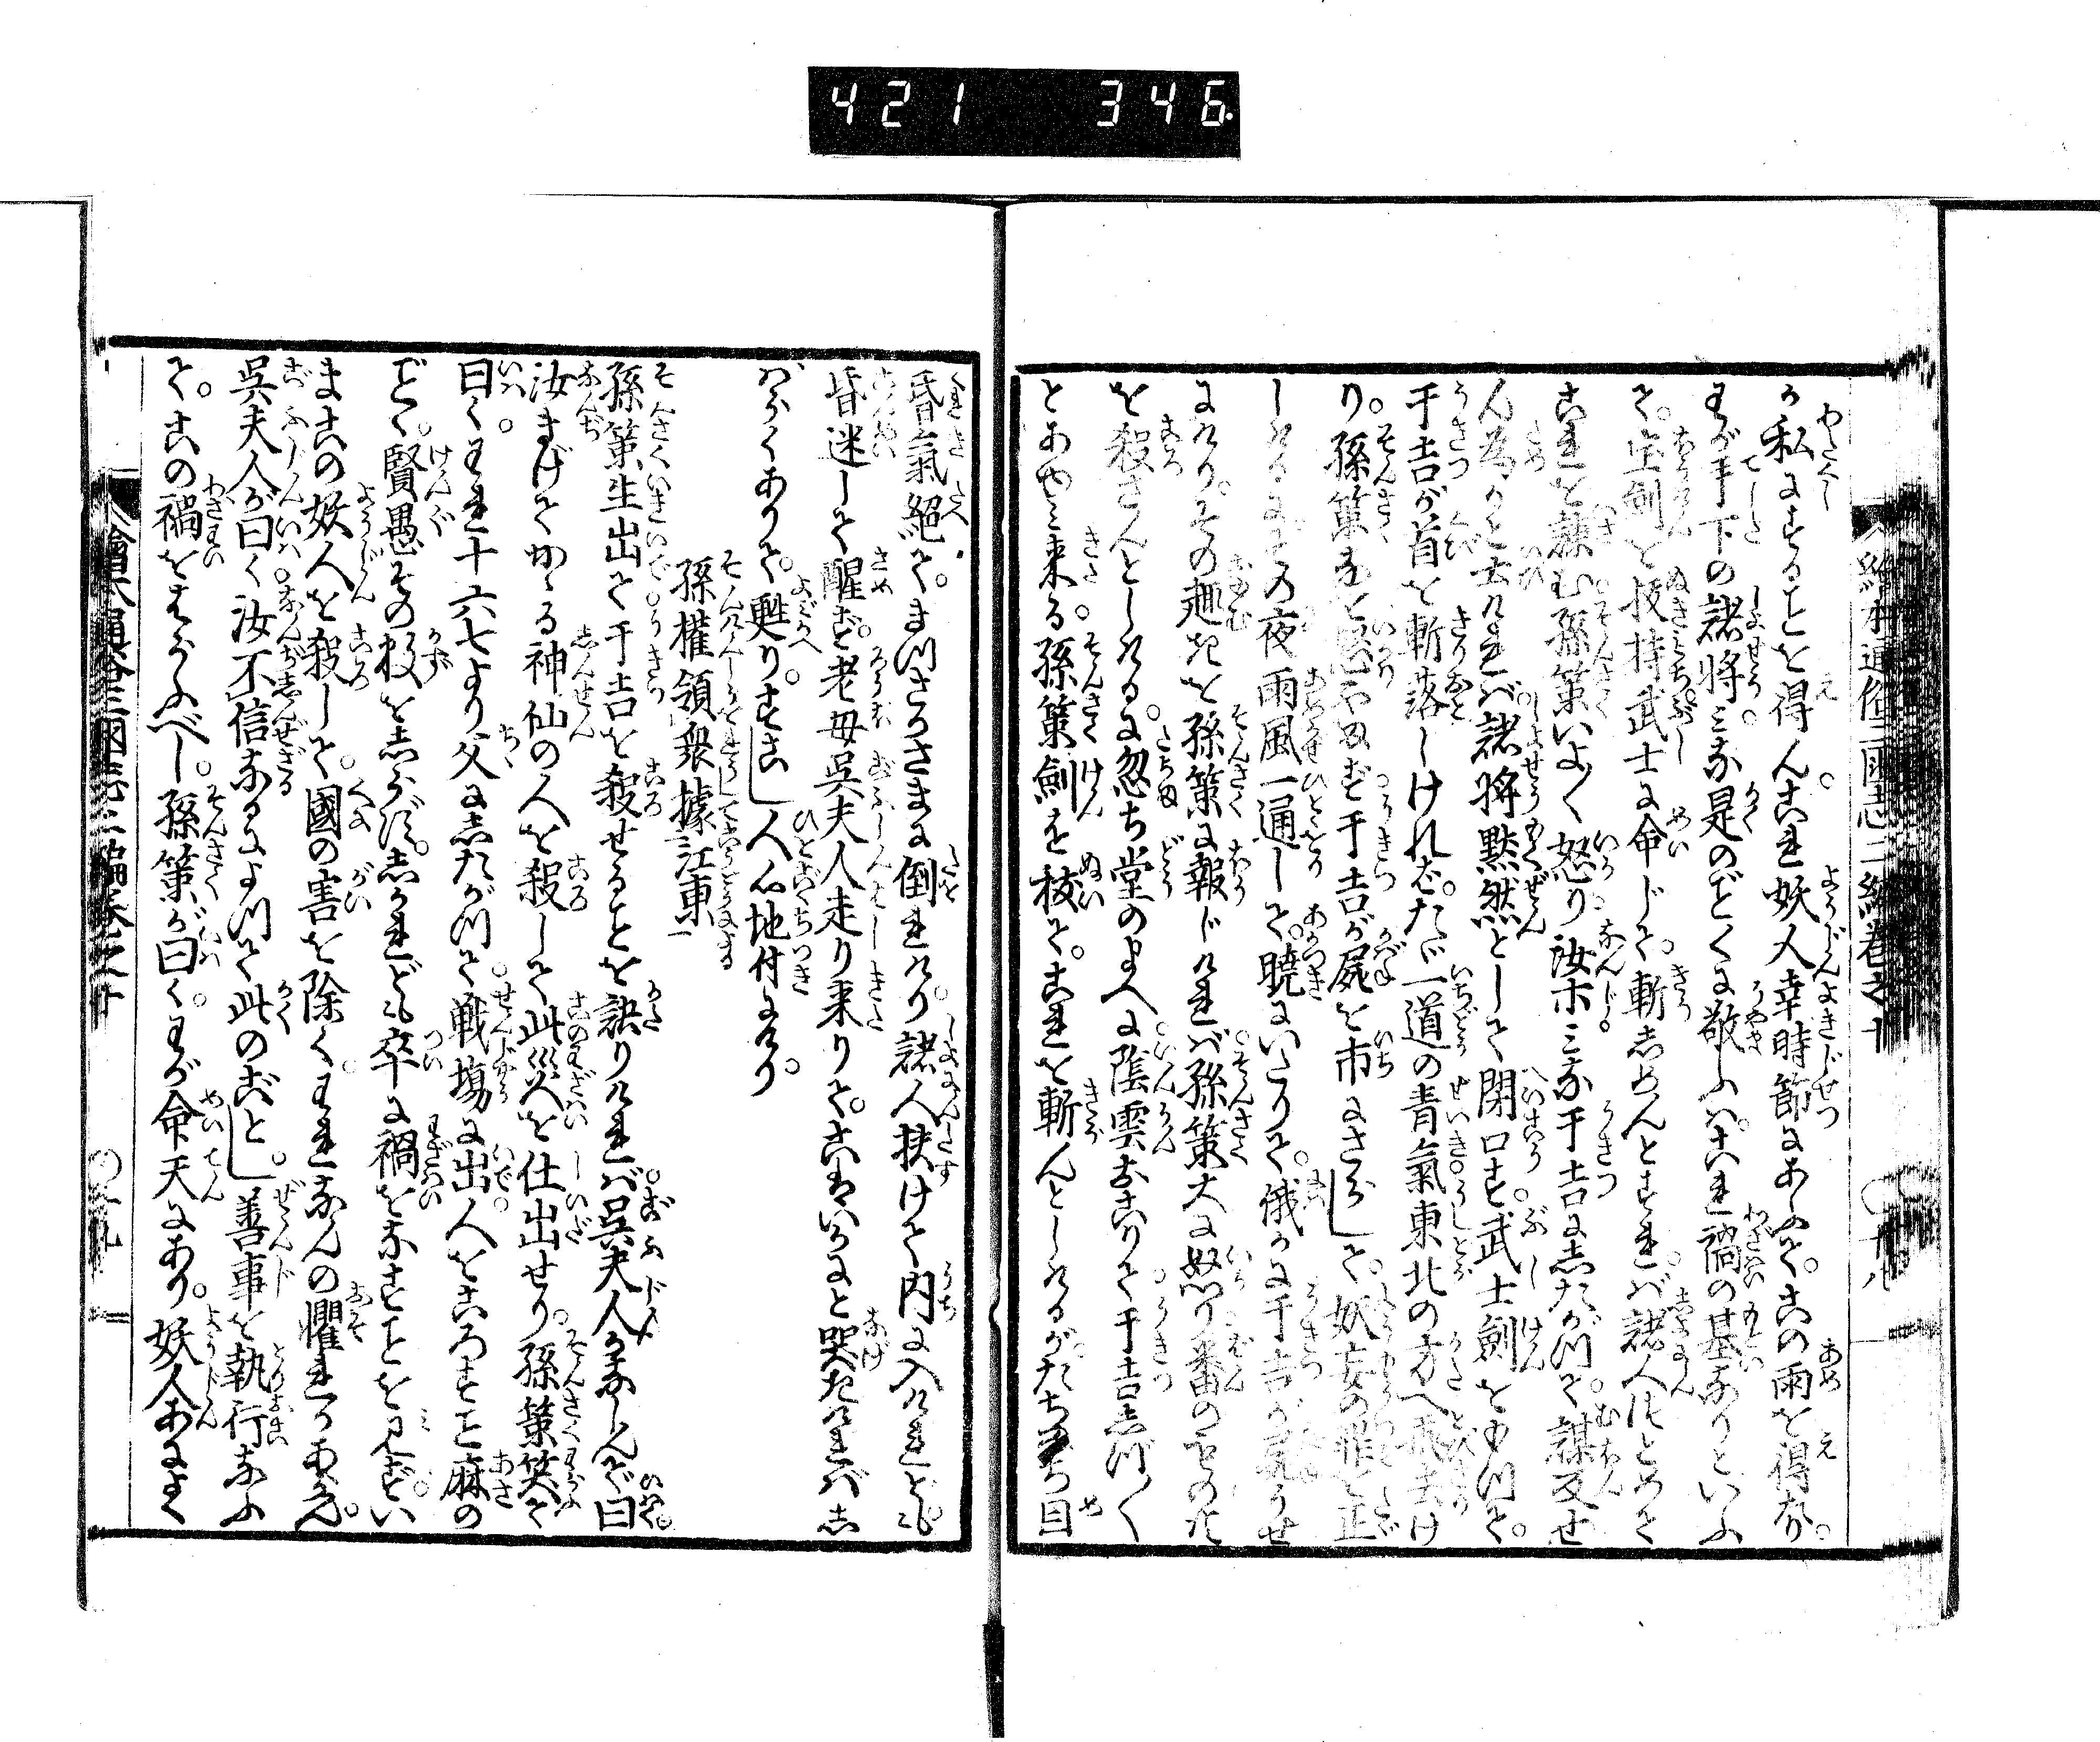 421 346
繪本通俗三國志二編卷之十 〇十八
か私にすることを得んこれ妖人幸時節にあふて。この雨を得たり。
わが手下の諸將みな是のごとくに敬ふハ。これ禍の基なりといふ
て。宝劍を抜持武士に命じて。斬しめんとすれバ諸人とめて
これを諫む孫策いよ〳〵怒り汝ホみな于吉にしたがつて。謀反せ
ん為かと云けれバ。諸將黙然として閉口す。武士劍をぬつて。
于吉が首を斬落しけれバ。たゞ一道の青氣東北の方へ飛去け
り。孫策なを怒やまず于吉が屍を市にさらして。妖妄の罪を正
しけるにその夜雨風一通して。暁にいたりて。俄かに于吉が屍うせ
にけり。その趣きを孫策に報じけれバ孫策大に怒り番の者の
を殺さんとしける に。忽ち堂のまへに陰雲おこりて于吉しづ〳〵
とあゆみ来る。孫策劍を抜て。これを斬んとしけるが。たちまち目
昏氣絶て。まつさかさまに倒れけり。諸人扶けて内に入けれども
昏迷して醒ず。老母呉夫人走り来りて。こはいかにと哭きけれバし
ばらくありて。甦りすこし人心地付にけり。
孫權領衆據江東
孫策生出て于吉を殺せることを訣りけれバ。呉夫人かなしんで曰。
汝まげてかゝる神仙の人を殺して此災を仕出せり。孫策笑て
曰く。われ十六七より父にしたがつて。戦場に出。人をころすこと麻の
ごとく。賢愚その数をしらず。しかれども卒に禍をなすことを見ず。い
まこの妖人を殺して。國の害を除く。われなんの懼れかあらん。
呉夫人が曰く。汝不信なるによつて此のごとし。善事を執行なふ
て。この禍をはらふべし。孫策が曰く。わが命天にあり。妖人あによく
繪本通俗三國志二編卷之十 〇十九